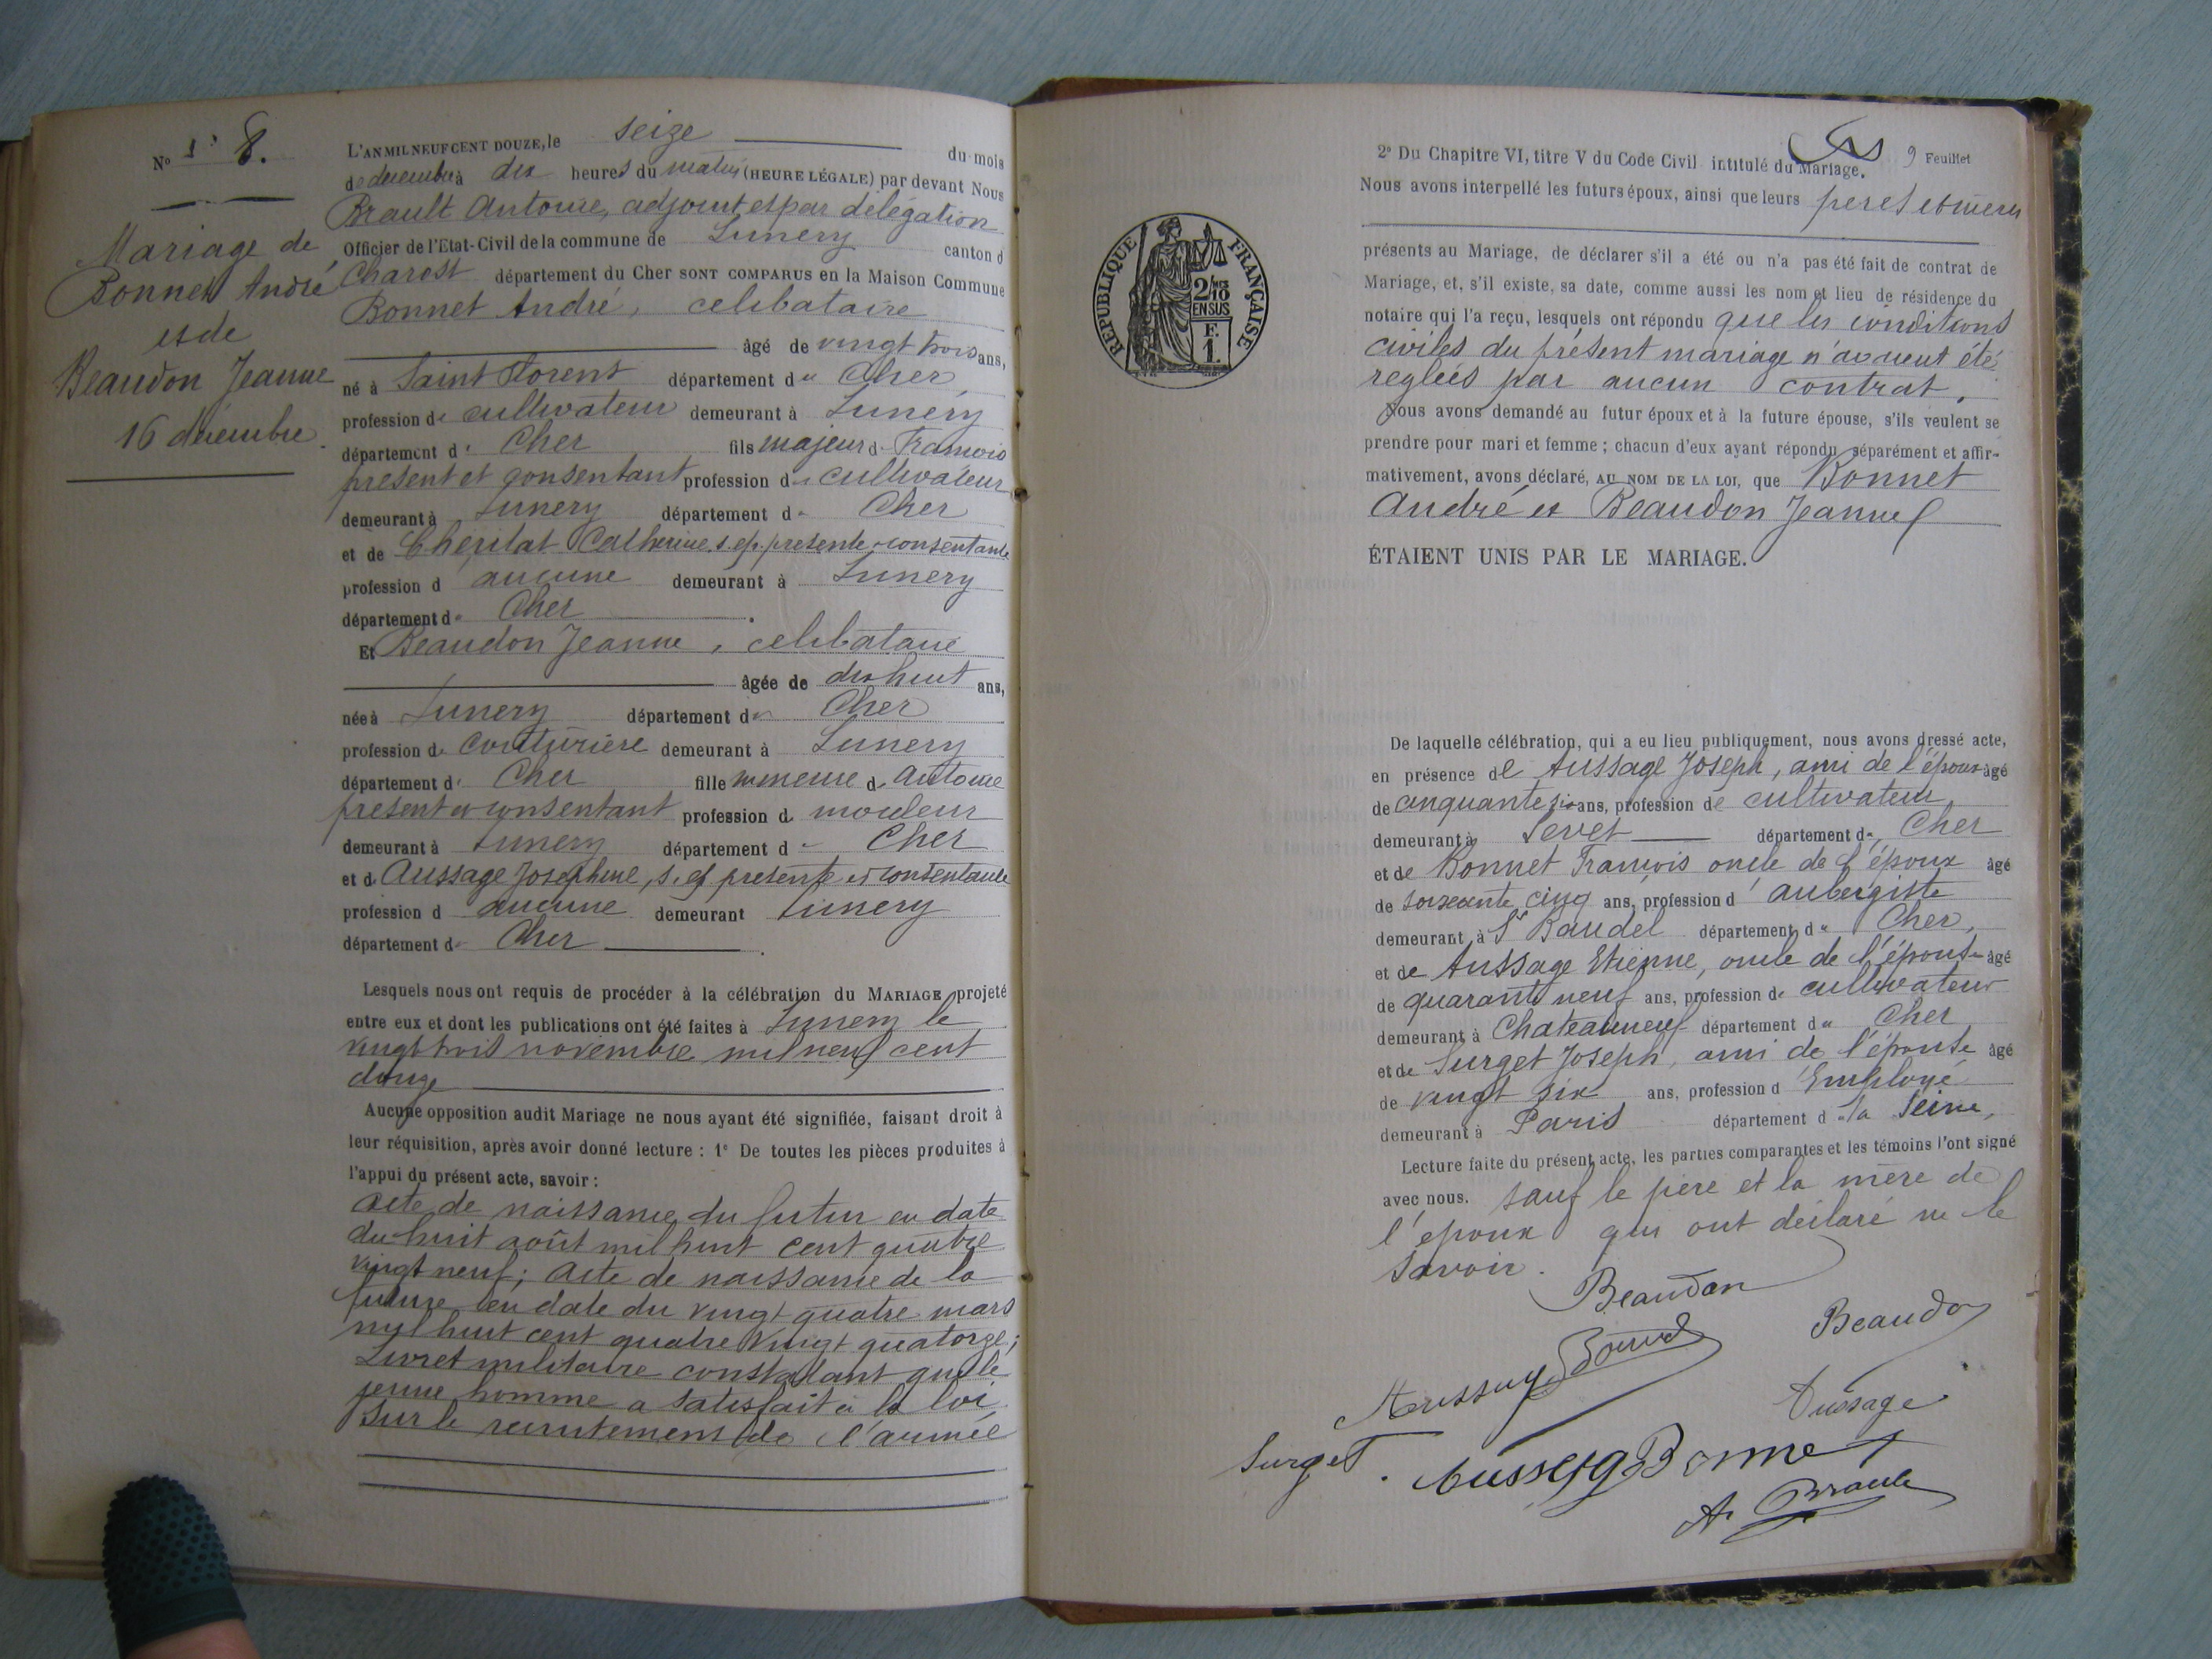 N° 8.
Mariage de
Bonnet André
et de
Beaudon Jeanne
16 décembre
L'AN MIL NEUF CENT DOUZE, le seize du mois
de décembre à dix heures du matin (HEURE LÉGALE) par devant Nous
Brault Antoine, adjoint et par délégation
Officier de l'Etat-Civil de la commune de Lunery canton d
Charost département du Cher SONT COMPARUS en la Maison Commune
Bonnet André, celibataire
âgé de vingt trois ans,
né à Saint Florent département du Cher
profession de cultivateur demeurant à Lunery
département d Cher fils majeur d François
présent et consentant profession de cultivateur
demeurant à Lunery département d Cher
et de Catherine s. ef. présente consentante
profession d aucune demeurant à Lunery
département d Cher
Et Beaudon Jeanne, celibataire
âgée de dix huit ans,
née à Lunery département d Cher
profession de couturière demeurant à Lunery
département d Cher fille mineure d Antoine
présent et consentant profession de mouleur
demeurant à Lunery département d Cher
et d Aussage Josephine, s. ef présente et consentante
profession d aucune demeurant Lunery
département d Cher
Lesquels nous ont requis de procéder à la célébration du MARIAGE projeté
entre eux et dont les publications ont été faites à Lunery le
vingt trois novembre mil neuf cent
douze
Aucune opposition audit Mariage ne nous ayant été signifiée, faisant droit à
leur réquisition, après avoir donné lecture : 1° De toutes les pièces produites à
l'appui du présent acte, savoir :
Acte de naissance du futur en date
du huit août mil huit cent quatre
vingt neuf; Acte de naissance de la
future en date du vingt quatre mars
mil huit cent quatre vingt quatorze;
Livret militaire constatant que le
jeune homme a satisfait à la loi
sur le recrutement de l'armée
9 Feuillet
2° Du Chapitre VI, titre V du Code Civil intitulé du Mariage.
Nous avons interpellé les futurs époux, ainsi que leurs peres et meres
présents au Mariage, de déclarer s'il a été ou n'a pas été fait de contrat de
Mariage, et, s'il existe, sa date, comme aussi les nom et lieu de résidence du
notaire qui l'a reçu, lesquels ont répondu que les conditions
civiles du présent mariage n'avaient été
reglées par aucun contrat.
Nous avons demandé au futur époux et à la future épouse, s'ils veulent se
prendre pour mari et femme ; chacun d'eux ayant répondu séparément et affir-
mativement, avons déclaré, AU NOM DE LA LOI, que Bonnet
André et Beaudon Jeanne
ÉTAIENT UNIS PAR LE MARIAGE.
RÉPUBLIQUE FRANÇAISE
2/10
EN SUS
F.
1.
De laquelle célébration, qui a eu lieu publiquement, nous avons dressé acte,
en présence de Aussage Joseph, ami de l'époux âgé
de cinquante six ans, profession de cultivateur
demeurant à Levet département du Cher
et de Bonnet François oncle de l'époux âgé
de soixante cinq ans, profession d'aubergiste
demeurant à St Baudel département du Cher,
et de Aussage Etienne, oncle de l'épouse âgé
de quarante neuf ans, profession de cultivateur
demeurant à Chateauneuf département du Cher
et de Surget Joseph, ami de l'épouse âgé
de vingt six ans, profession d'Employé
demeurant à Paris département d la Seine,
Lecture faite du présent acte, les parties comparantes et les témoins l'ont signé
avec nous. sauf le père et la mère de
l'époux qui ont déclaré ne le
savoir.
Beaudon
Beaudon
Aussage
Surget
Aussage Bonnet
A. Brault